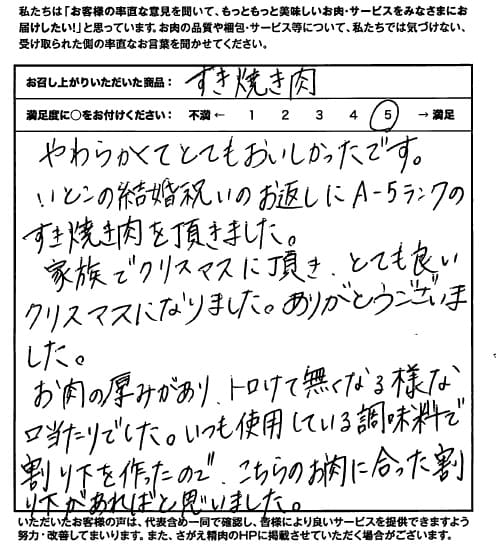 私たちは「お客様の率直な意見を聞いて、もっともっと美味しいお肉・サービスをみなさまにお
届けしたい!」と思っています。お肉の品質や梱包・サービス等について、私たちでは気づけない、
受け取られた側の率直なお言葉を聞かせてください。
お召し上がりいただいた商品： すき焼き肉
満足度に○をお付けください： 不満 ← 1 2 3 4 5 → 満足
やわらかくてとてもおいしかったです。
いとこの結婚祝いのお返しにA-5ランクの
すき焼き肉を頂きました。
家族でクリスマスに頂き、とても良い
クリスマスになりました。ありがとうございま
した。
お肉の厚みがあり、トロけて無くなる様な
口当たりでした。いつも使用している調味料で
割り下を作ったので、こちらのお肉に合った割
り下があればと思いました。
いただいたお客様の声は、代表含め一同で確認し、皆様により良いサービスを提供できますよう
努力・改善してまいります。また、さがえ精肉のHPに掲載させていただく場合がございます。